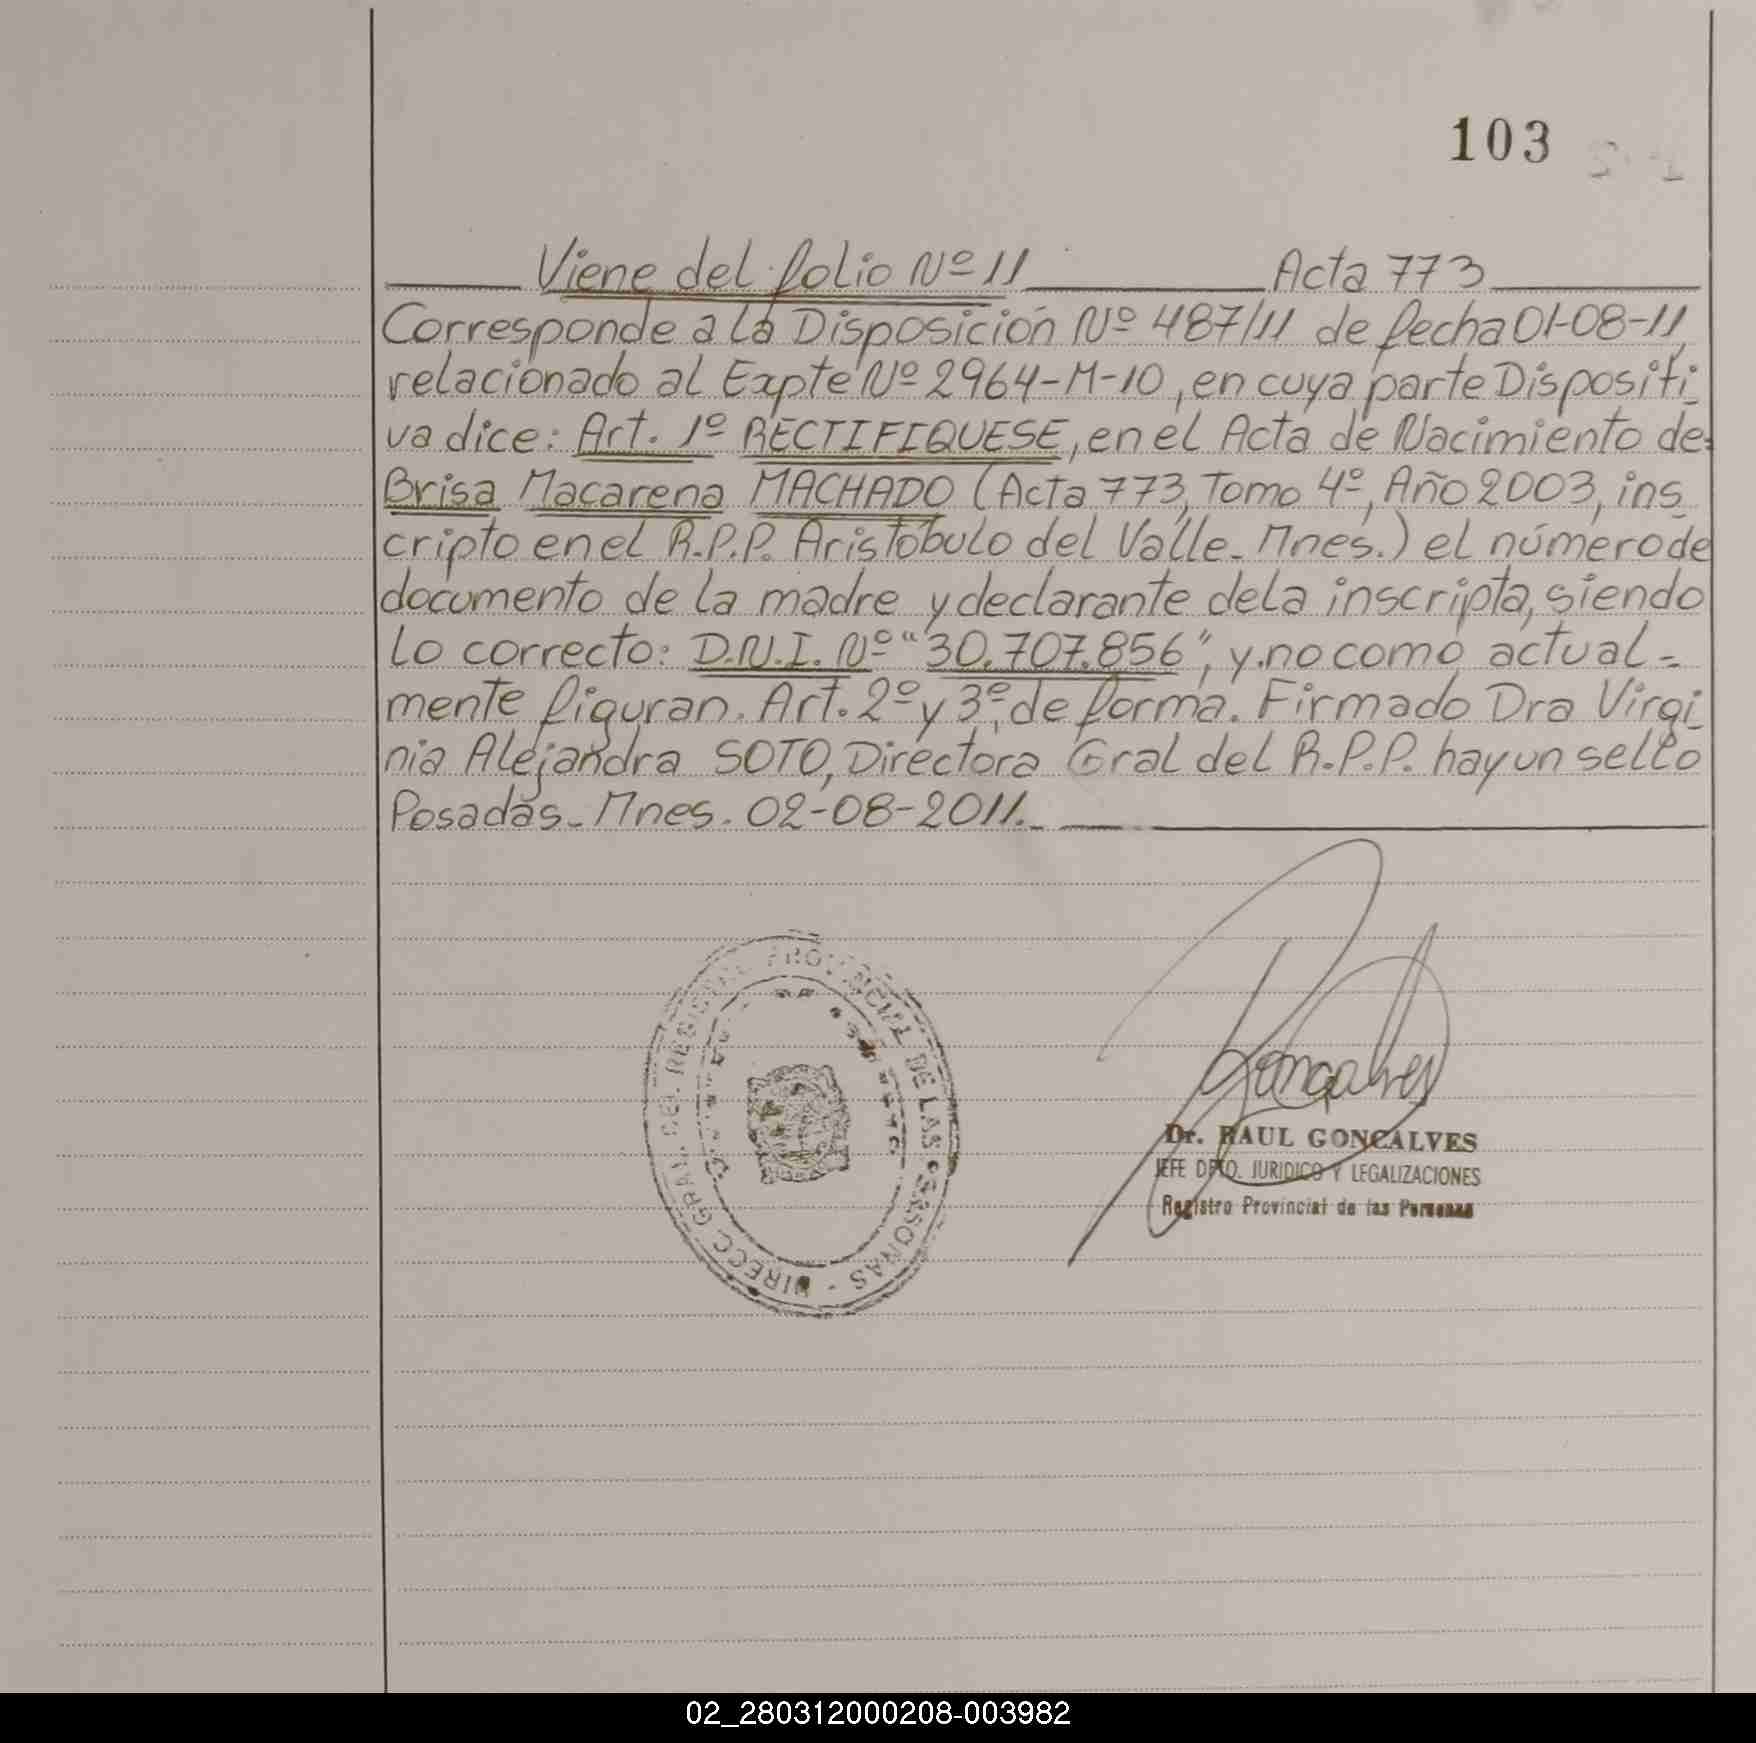 103
Viene del folio Nº 11 Acta 773
Corresponde a la Disposición Nº 487/11 de fecha 01-08-11,
relacionado al Expte Nº 2964-M-10, en cuya parte Dispositi-
va dice: Art. 1º RECTIFIQUESE, en el Acta de Nacimiento de:
Brisa Macarena MACHADO (Acta 773, Tomo 4º, Año 2003, ins-
cripto en el R.P.P. Aristóbulo del Valle - Mnes.) el número de
documento de la madre y declarante de la inscripta, siendo
lo correcto: D.N.I. Nº "30.707.856", y no como actual=
mente figuran. Art. 2º y 3º, de forma. Firmado Dra Virgi-
nia Alejandra SOTO, Directora Gral del R.P.P. hay un sello
Posadas - Mnes. 02-08-2011.-
DIRECC. GRAL. DEL REGISTRO PROVINCIAL DE LAS PERSONAS -
Goncalves
Dr. RAUL GONCALVES
JEFE DPTO. JURIDICO Y LEGALIZACIONES
Registro Provincial de las Personas
02_280312000208-003982